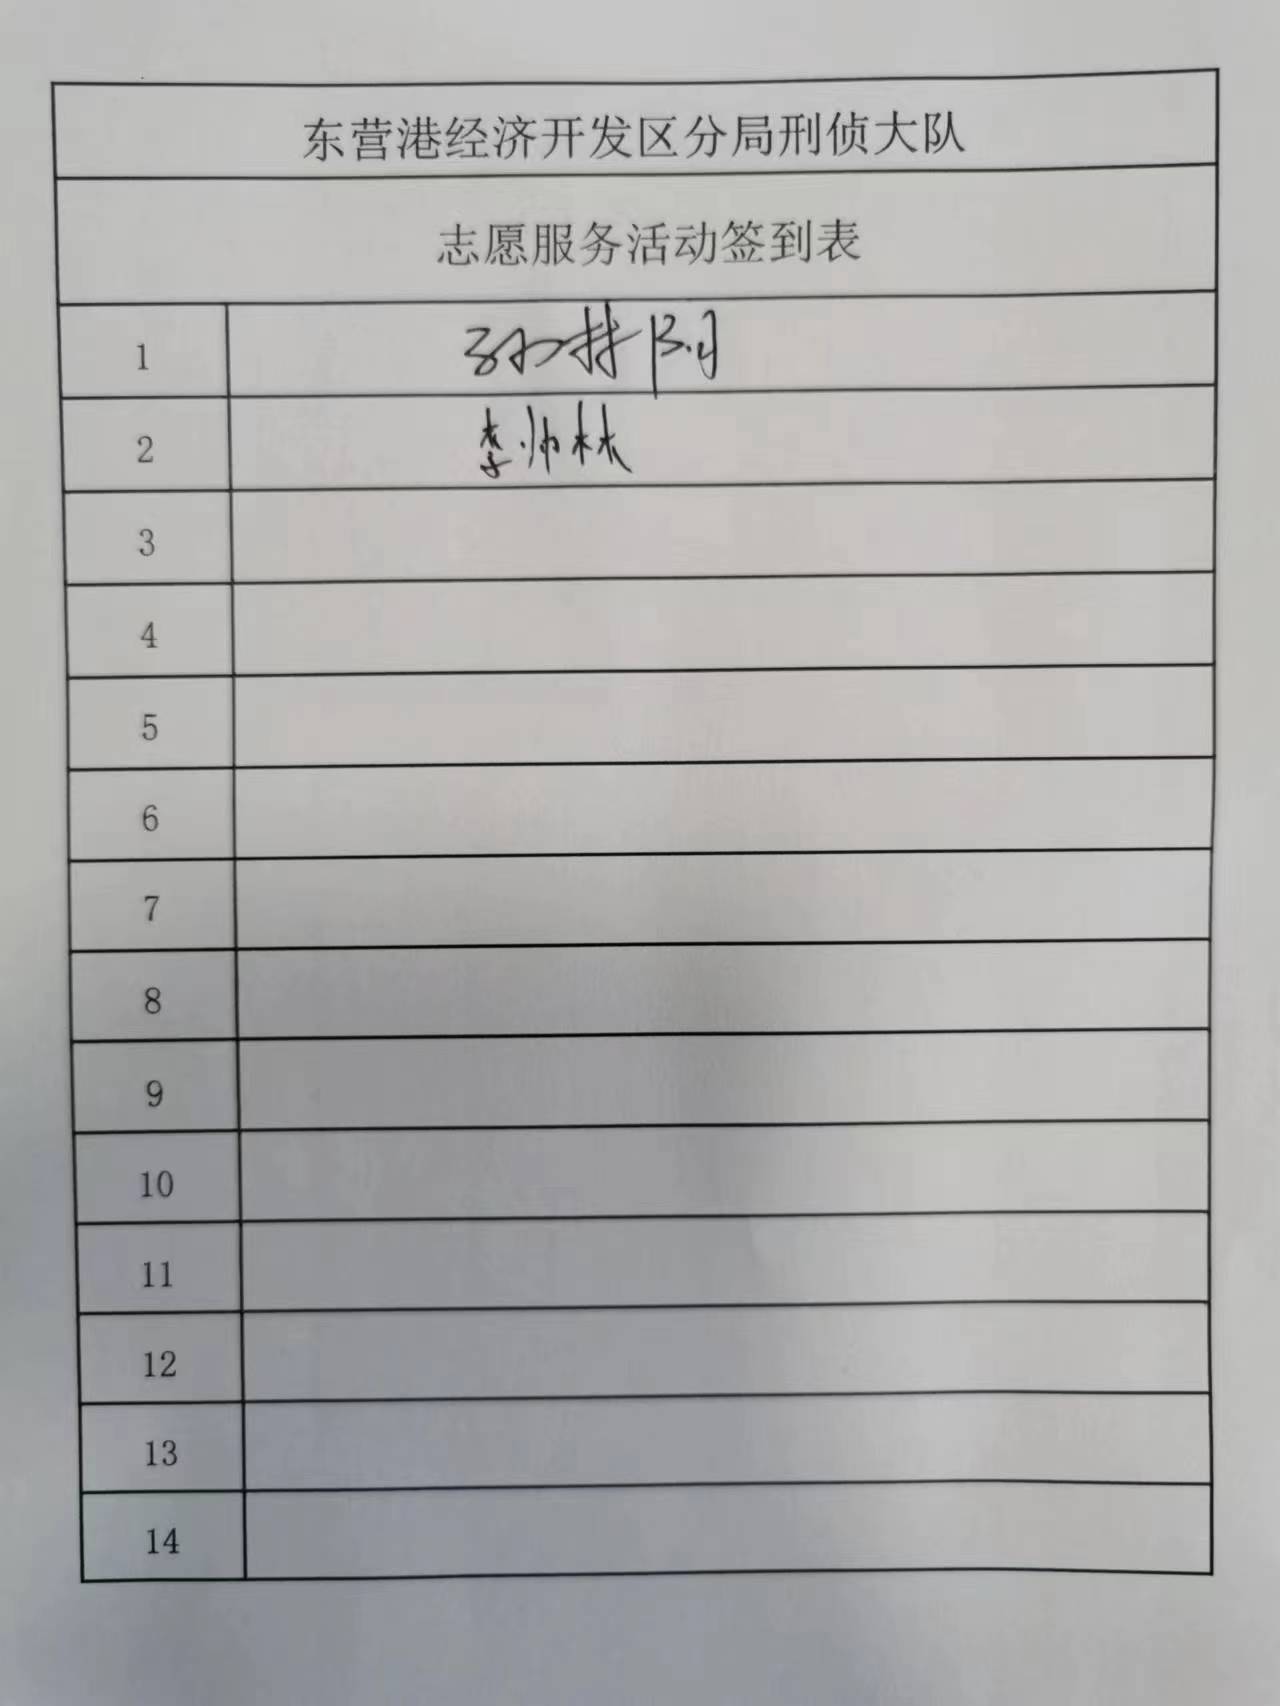 东营港经济开发区分局刑侦大队
志愿服务活动签到表
1
2 李帅林
3
4
5
6
7
8
9
10
11
12
13
14